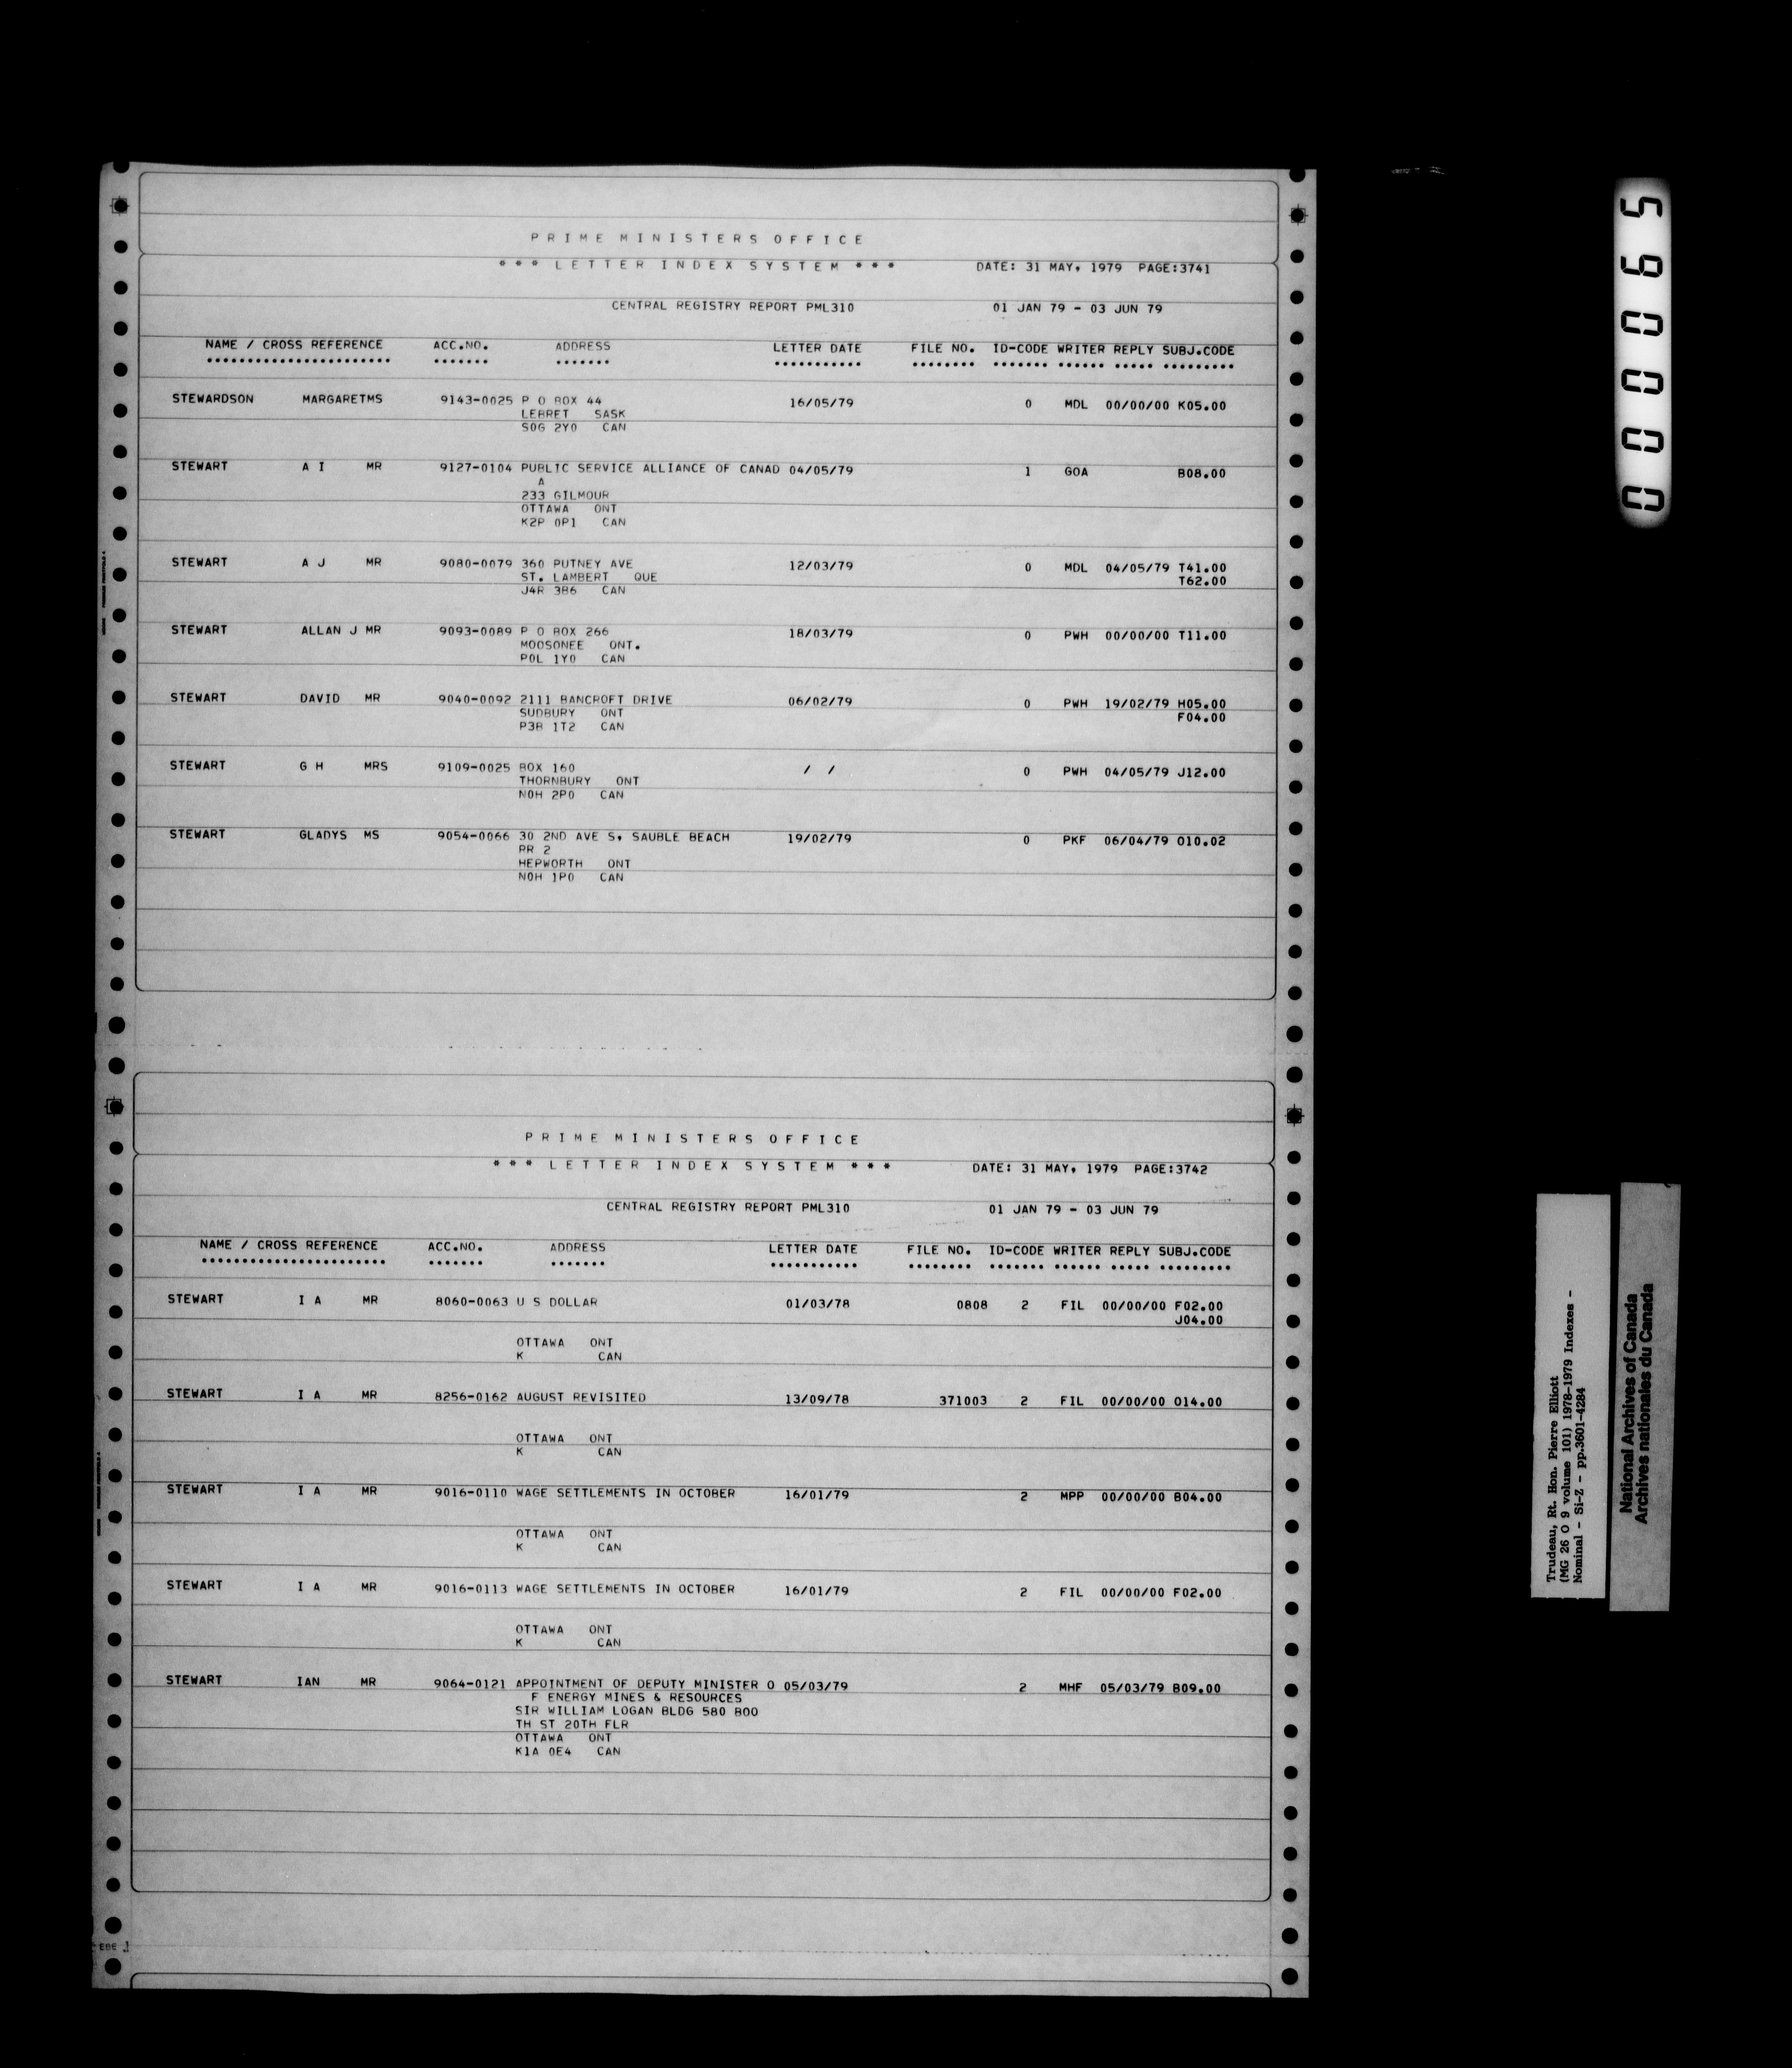 PRIME MINISTERS OFFICE
*** LETTER INDEX SYSTEM *** DATE: 31 MAY, 1979 PAGE:3741
CENTRAL REGISTRY REPORT PML310 01 JAN 79 - 03 JUN 79
NAME / CROSS REFERENCE ACC.NO. ADDRESS LETTER DATE FILE NO. ID-CODE WRITER REPLY SUBJ.CODE
STEWARDSON MARGARETMS 9143-0025 P O BOX 44 16/05/79 0 MDL 00/00/00 K05.00
LEBRET SASK
S0G 2Y0 CAN
STEWART A I MR 9127-0104 PUBLIC SERVICE ALLIANCE OF CANAD 04/05/79 1 GOA B08.00
A
233 GILMOUR
OTTAWA ONT
K2P 0P1 CAN
STEWART A J MR 9080-0079 360 PUTNEY AVE 12/03/79 0 MDL 04/05/79 T41.00
ST. LAMBERT QUE T62.00
J4R 3B6 CAN
STEWART ALLAN J MR 9093-0089 P O BOX 266 18/03/79 0 PWH 00/00/00 T11.00
MOOSONEE ONT.
P0L 1Y0 CAN
STEWART DAVID MR 9040-0092 2111 BANCROFT DRIVE 06/02/79 0 PWH 19/02/79 H05.00
SUDBURY ONT F04.00
P3B 1T2 CAN
STEWART G H MRS 9109-0025 BOX 160 / / 0 PWH 04/05/79 J12.00
THORNBURY ONT
N0H 2P0 CAN
STEWART GLADYS MS 9054-0066 30 2ND AVE S, SAUBLE BEACH 19/02/79 0 PKF 06/04/79 O10.02
RR 2
HEPWORTH ONT
N0H 1P0 CAN
PRIME MINISTERS OFFICE
*** LETTER INDEX SYSTEM *** DATE: 31 MAY, 1979 PAGE:3742
CENTRAL REGISTRY REPORT PML310 01 JAN 79 - 03 JUN 79
NAME / CROSS REFERENCE ACC.NO. ADDRESS LETTER DATE FILE NO. ID-CODE WRITER REPLY SUBJ.CODE
STEWART I A MR 8060-0063 U S DOLLAR 01/03/78 0808 2 FIL 00/00/00 F02.00
J04.00
OTTAWA ONT
K CAN
STEWART I A MR 8256-0162 AUGUST REVISITED 13/09/78 371003 2 FIL 00/00/00 O14.00
OTTAWA ONT
K CAN
STEWART I A MR 9016-0110 WAGE SETTLEMENTS IN OCTOBER 16/01/79 2 MPP 00/00/00 B04.00
OTTAWA ONT
K CAN
STEWART I A MR 9016-0113 WAGE SETTLEMENTS IN OCTOBER 16/01/79 2 FIL 00/00/00 F02.00
OTTAWA ONT
K CAN
STEWART IAN MR 9064-0121 APPOINTMENT OF DEPUTY MINISTER O 05/03/79 2 MHF 05/03/79 B09.00
F ENERGY MINES & RESOURCES
SIR WILLIAM LOGAN BLDG 580 BOO
TH ST 20TH FLR
OTTAWA ONT
K1A 0E4 CAN
EBE 1
000065
Trudeau, Rt. Hon. Pierre Elliott
(MG 26 O 9 volume 101) 1978-1979 Indexes -
Nominal - Si-Z - pp.3601-4284
National Archives of Canada
Archives nationales du Canada